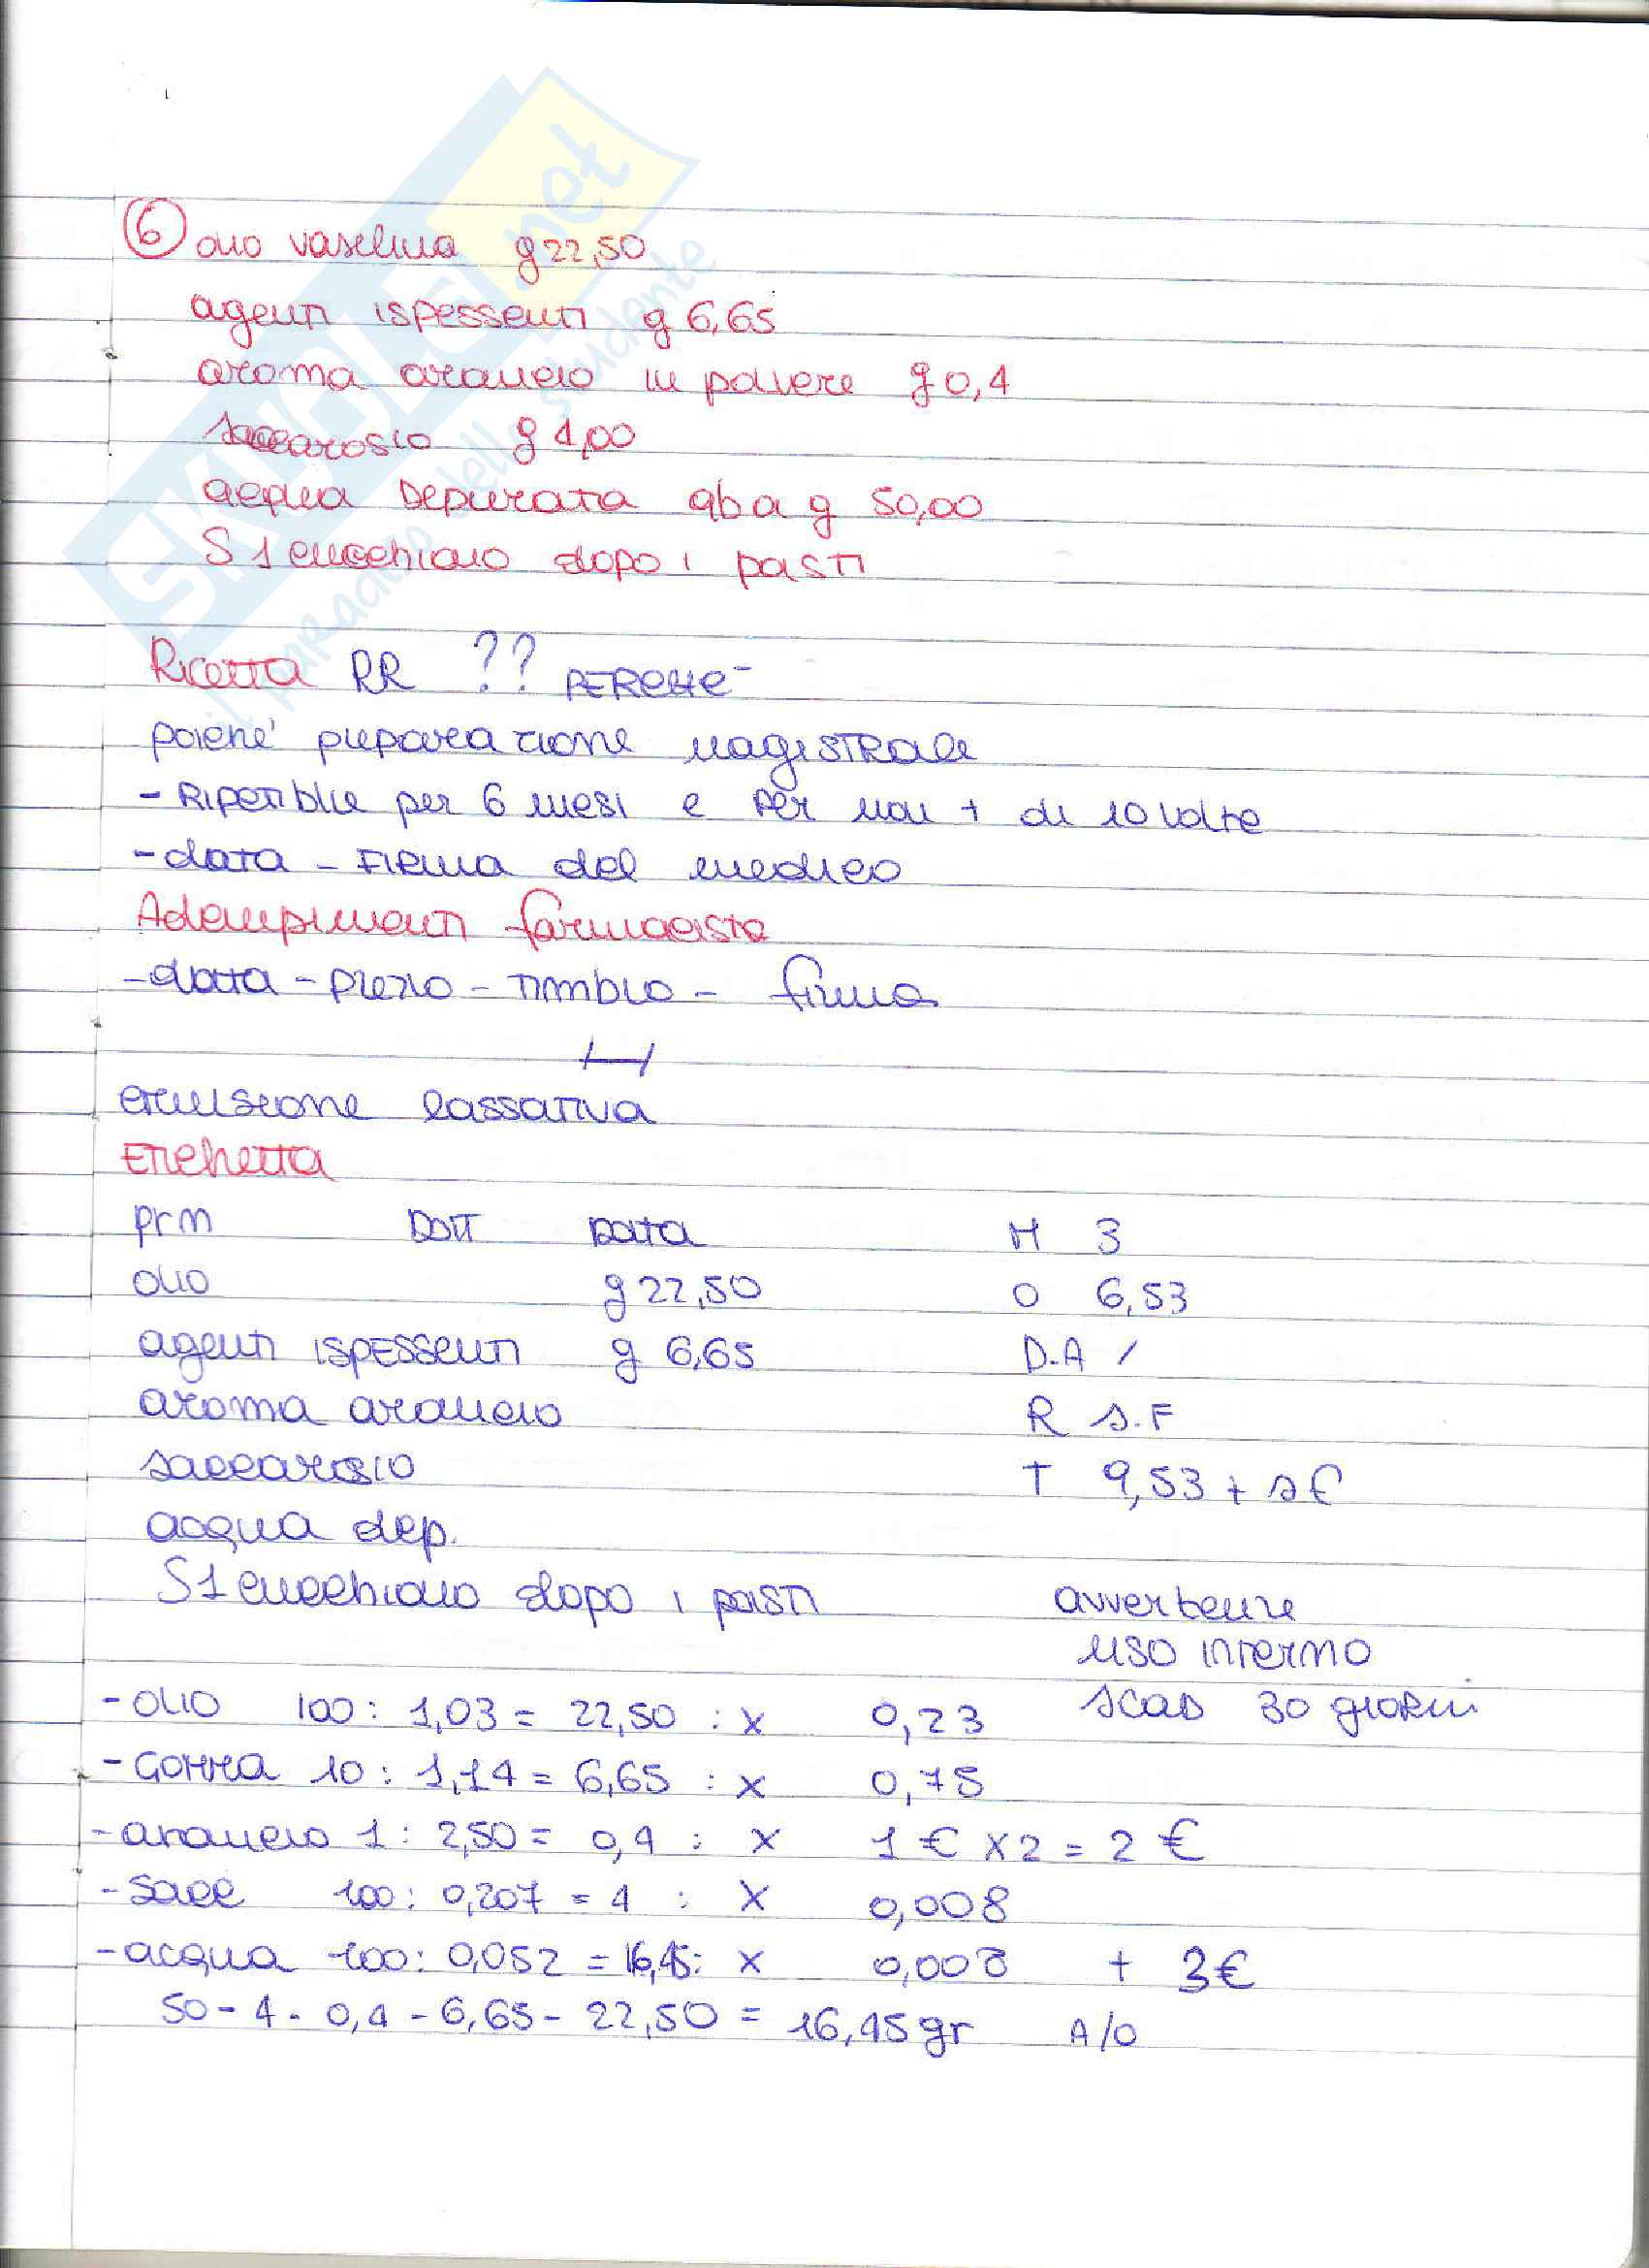 6 olio vaselina g 22,50
agenti ispessenti g 6,65
aroma arancio in polvere g 0,4
saccarosio g 4,00
acqua depurata qb a g 50,00
S 1 cucchiaio dopo i pasti
Ricetta RR ?? PERCHE'
poiche' preparazione magistrale
- Ripetibile per 6 mesi e per non + di 10 volte
- data - Firma del medico
Adempimenti farmacista
- data - prezzo - timbro - firma
emulsione lassativa
Etichetta
prm DOTT Data M 3
olio g 22,50 O 6,53
agenti ispessenti g 6,65 D.A /
aroma arancio R s.F
saccarosio T 9,53 + s €
acqua dep.
S 1 cucchiaio dopo i pasti avvertenze
uso interno
- olio 100 : 1,03 = 22,50 : x 0,23 scad 30 giorni
- Gomma 10 : 1,14 = 6,65 : x 0,75
- arancio 1 : 2,50 = 0,4 : x 1 € x 2 = 2 €
- sacc 100 : 0,207 = 4 : x 0,008
- acqua 100 : 0,052 = 16,45 : x 0,008 + 3 €
50 - 4 - 0,4 - 6,65 - 22,50 = 16,45 gr A/O
SKUOLA.net
il paradiso dello studente